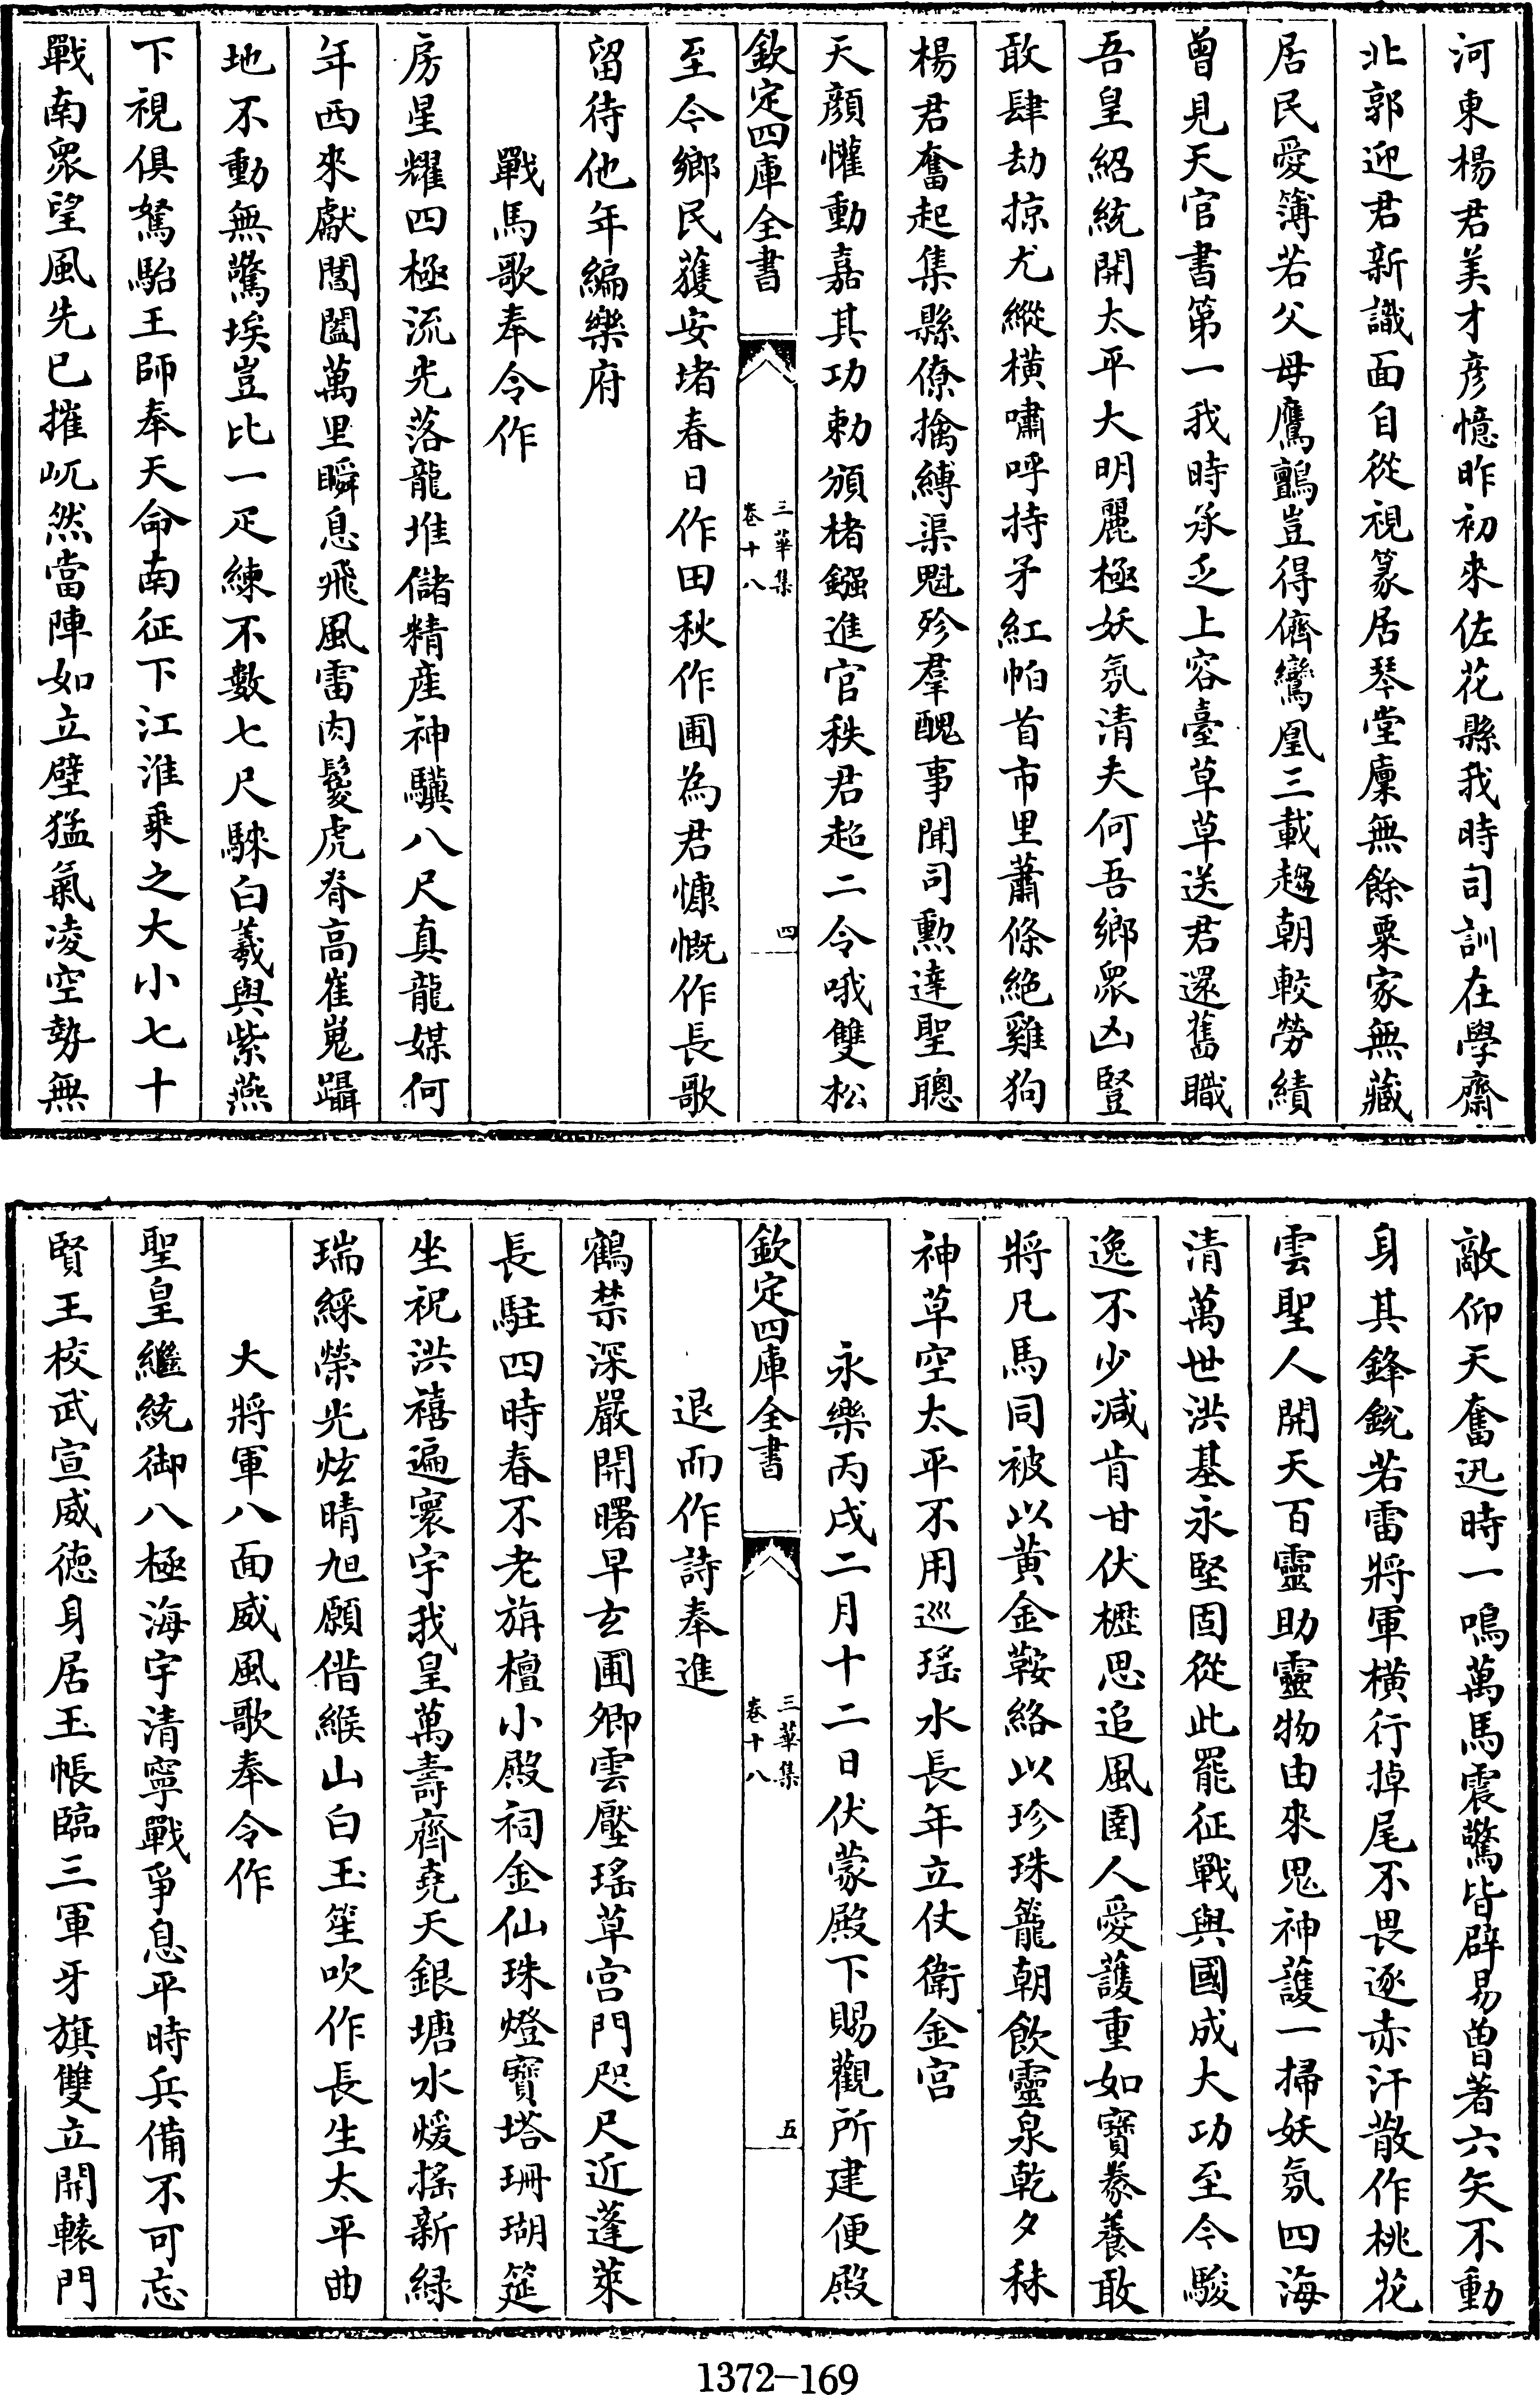 河東楊君美才彦憶昨初來佐花縣我時司訓在學齋
北郭迎君新識面自從視篆居琴堂廩無餘粟家無藏
居民愛簿若父母鷹鸇豈得儕鸞凰三載趨朝較勞績
曾見天官書第一我時承乏上容臺草草送君還舊職
吾皇紹統開太平大明麗極妖氛清夫何吾鄉衆凶豎
敢肆劫掠尤縱横嘯呼持矛紅帕首市里蕭條絶雞狗
楊君奮起集縣僚擒縛渠魁殄羣醜事聞司勲達聖聰
天顔懽動嘉其功勅頒楮鏹進官秩君超二令哦雙松
欽定四庫全書
三華集
卷十八
四
至今鄉民蒦安堵春日作田秋作圃為君慷慨作長歌
留待他年編樂府
戰馬歌奉令作
房星耀四極流光落龍堆儲精産神驥八尺真龍媒何
年西來獻閶闔萬里瞬息飛風雷肉鬉虎脊高崔嵬躡
地不動無驚埃豈比一疋練不數七尺騋白羲與紫燕
下視俱駑駘王師奉天命南征下江淮乗之大小七十
戰南衆望風先已摧屹然當陣如立壁猛氣凌空勢無
敵仰天奮迅時一鳴萬馬震驚皆辟易曽著六矢不動
身其鋒鋭若雷將軍横行掉尾不畏逐赤汗散作桃花
雲聖人開天百靈助靈物由來鬼神護一掃妖氛四海
清萬世洪基永堅固從此罷征戰與國成大功至今駿
逸不少减肯甘伏櫪思追風圉人愛護重如寳豢養敢
將凡馬同被以黄金鞍絡以珍珠籠朝飲靈泉乾夕秣
神草空太平不用巡瑶水長年立仗衛金宫
永樂丙戌二月十二日伏蒙殿下賜觀所建便殿
欽定四庫全書
三華集
卷十八
五
退而作詩奉進
鶴禁深嚴開曙早玄圃卿雲壓瑶草宫門咫尺近蓬萊
長駐四時春不老旃檀小殿祠金仙珠燈寳塔珊瑚筵
坐祝洪禧遍寰宇我皇萬壽齊堯天銀塘水煖揺新緑
瑞綵榮光炫晴旭願偕緱山白玉笙吹作長生太平曲
大將軍八面威風歌奉令作
聖皇繼統御八極海宇清寧戰爭息平時兵備不可忘
賢王校武宣威德身居玉帳臨三軍牙旗雙立開轅門
1372-169